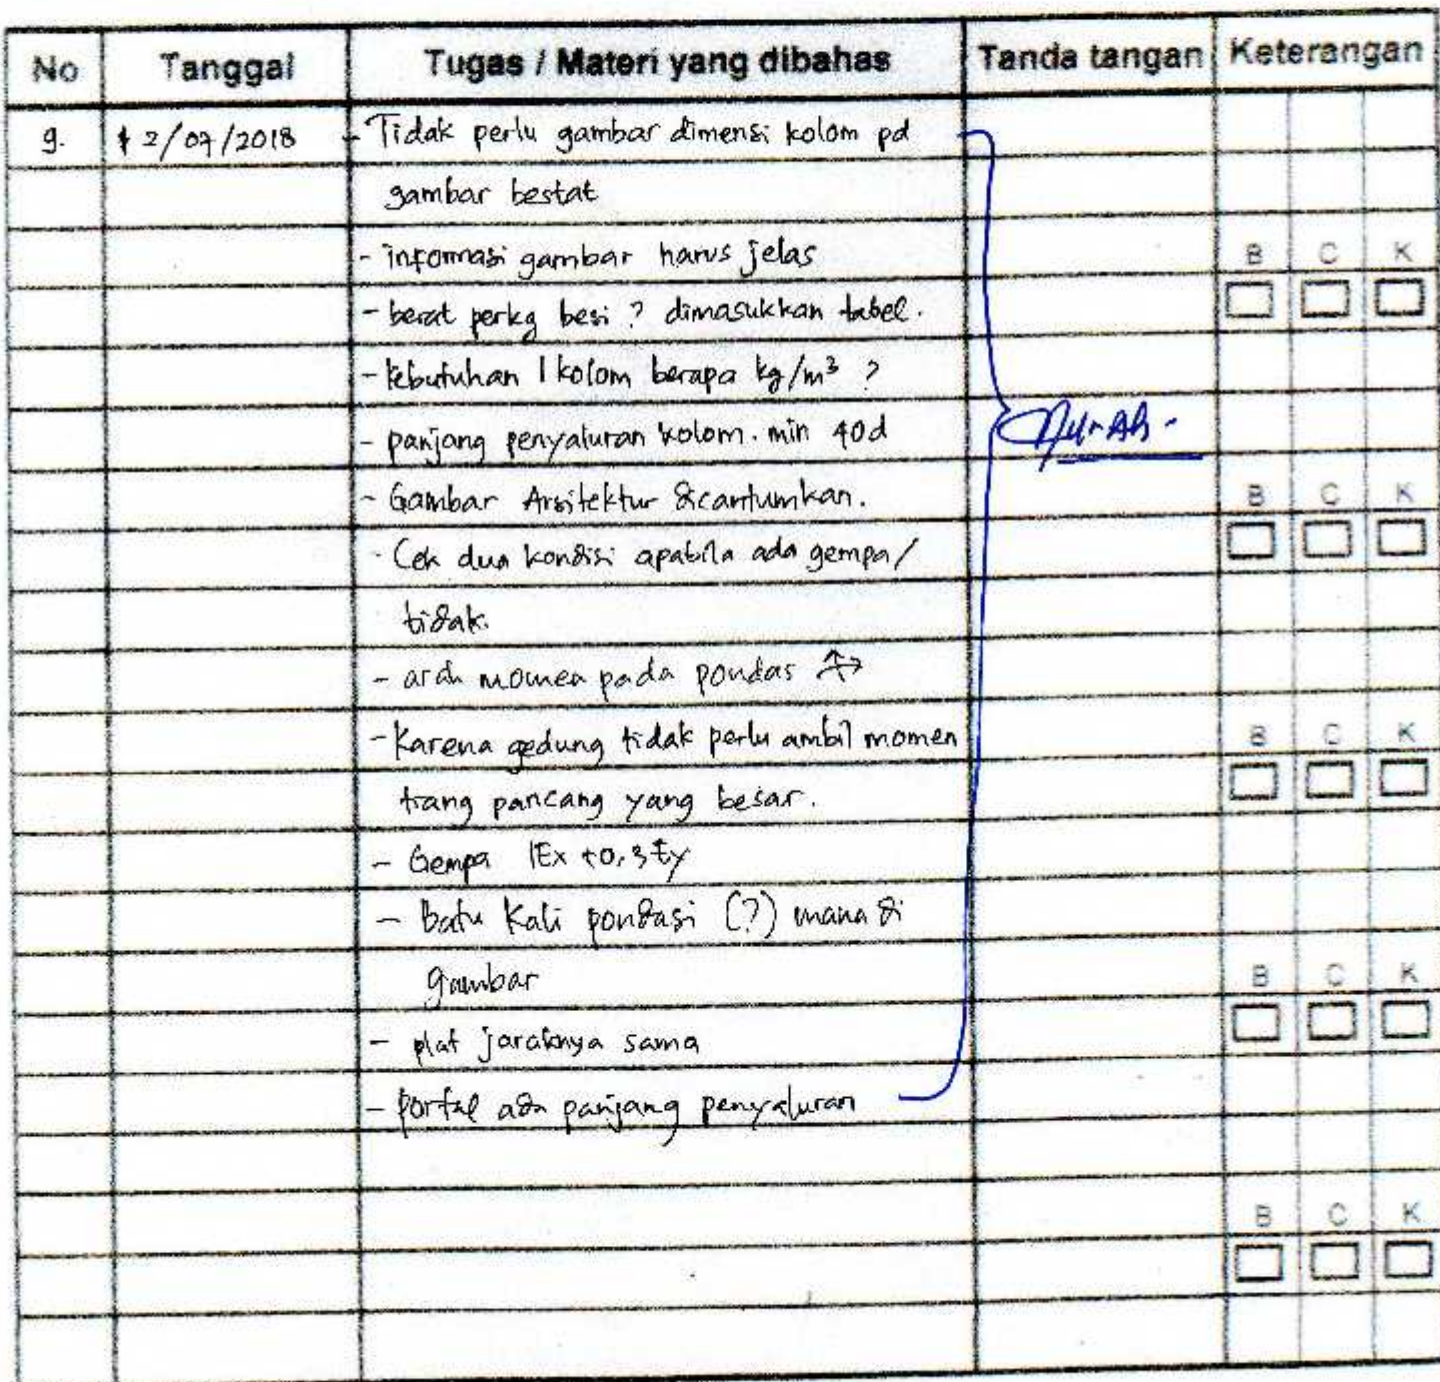 No Tanggal Tugas / Materi yang dibahas Tanda tangan Keterangan
9. 2/07/2018 - Tidak perlu gambar dimensi kolom pd
gambar bestat
- informasi gambar harus jelas
B C K
- berat perkg besi ? dimasukkan tabel.
- kebutuhan 1 kolom berapa kg/m³ ?
- panjang penyaluran kolom. min 40d
- Gambar Arsitektur dicantumkan.
B C K
- Cek dua kondisi apabila ada gempa/
tidak.
- arah momen pada pondas
- Karena gedung tidak perlu ambil momen
B C K
tiang pancang yang besar.
- Gempa 1Ex +0,3Ey
- Batu Kali pondasi (?) mana di
gambar
B C K
- plat jaraknya sama
- portal ada panjang penyaluran
B C K